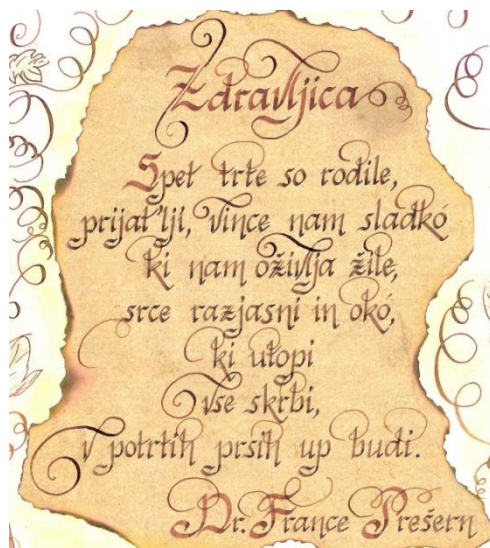 Zdravljica
Spet trte so rodile,
prijat'lji, vince nam sladkó
ki nam oživlja žile,
srce razjasni in okó,
ki utopi
vse skrbi,
v potrtih prsih up budi.
Dr. France Prešern